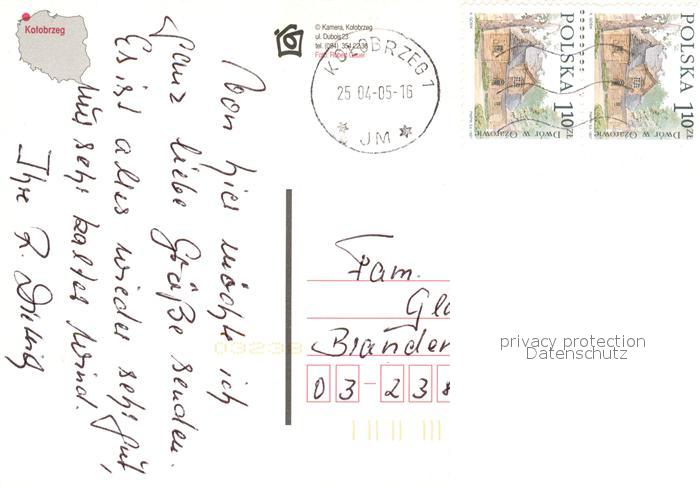 Kołobrzeg
© Kamera, Kołobrzeg
ul. Dubois 23
tel. (094) 354 22 36
KOŁOBRZEG 1
25 04-05-16
JM
POLSKA 1,10 ZŁ
Dwór w Ożarowie
POLSKA 1,10 ZŁ
Dwór w Ożarowie
Von hier möchte ich
ganz liebe Grüße senden.
Es ist alles wieder sehr gut,
nur sehr kalter Wind.
Ihre R.
Fam.
Gla
Branden
03-238
03238
privacy protection
Datenschutz